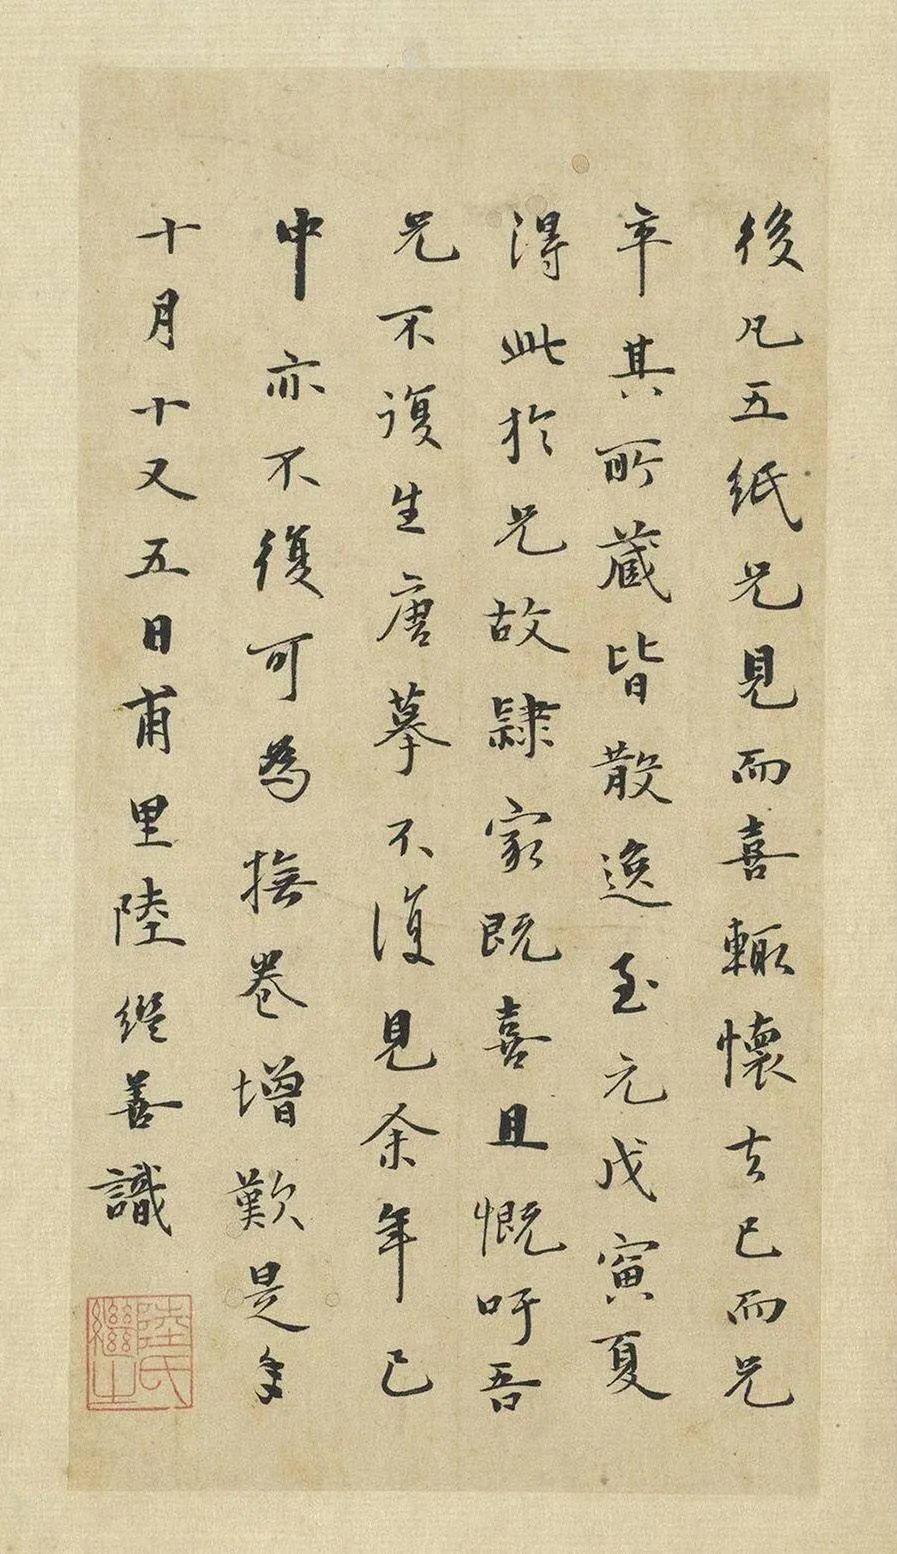 後凡五紙兄見而喜輒懷去已而兄
卒其所藏皆散逸至元戊寅夏
得此於兄故隸家既喜且慨吁吾
兄不復生唐摹不復見余年已
中亦不復可為撫卷增歎是年
十月十又五日甫里陸繼善識
陸氏繼之